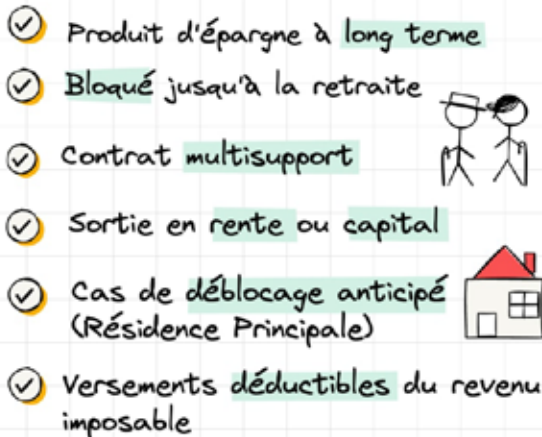 Produit d'épargne à long terme
Bloqué jusqu'à la retraite
Contrat multisupport
Sortie en rente ou capital
Cas de déblocage anticipé
(Résidence Principale)
Versements déductibles du revenu
imposable